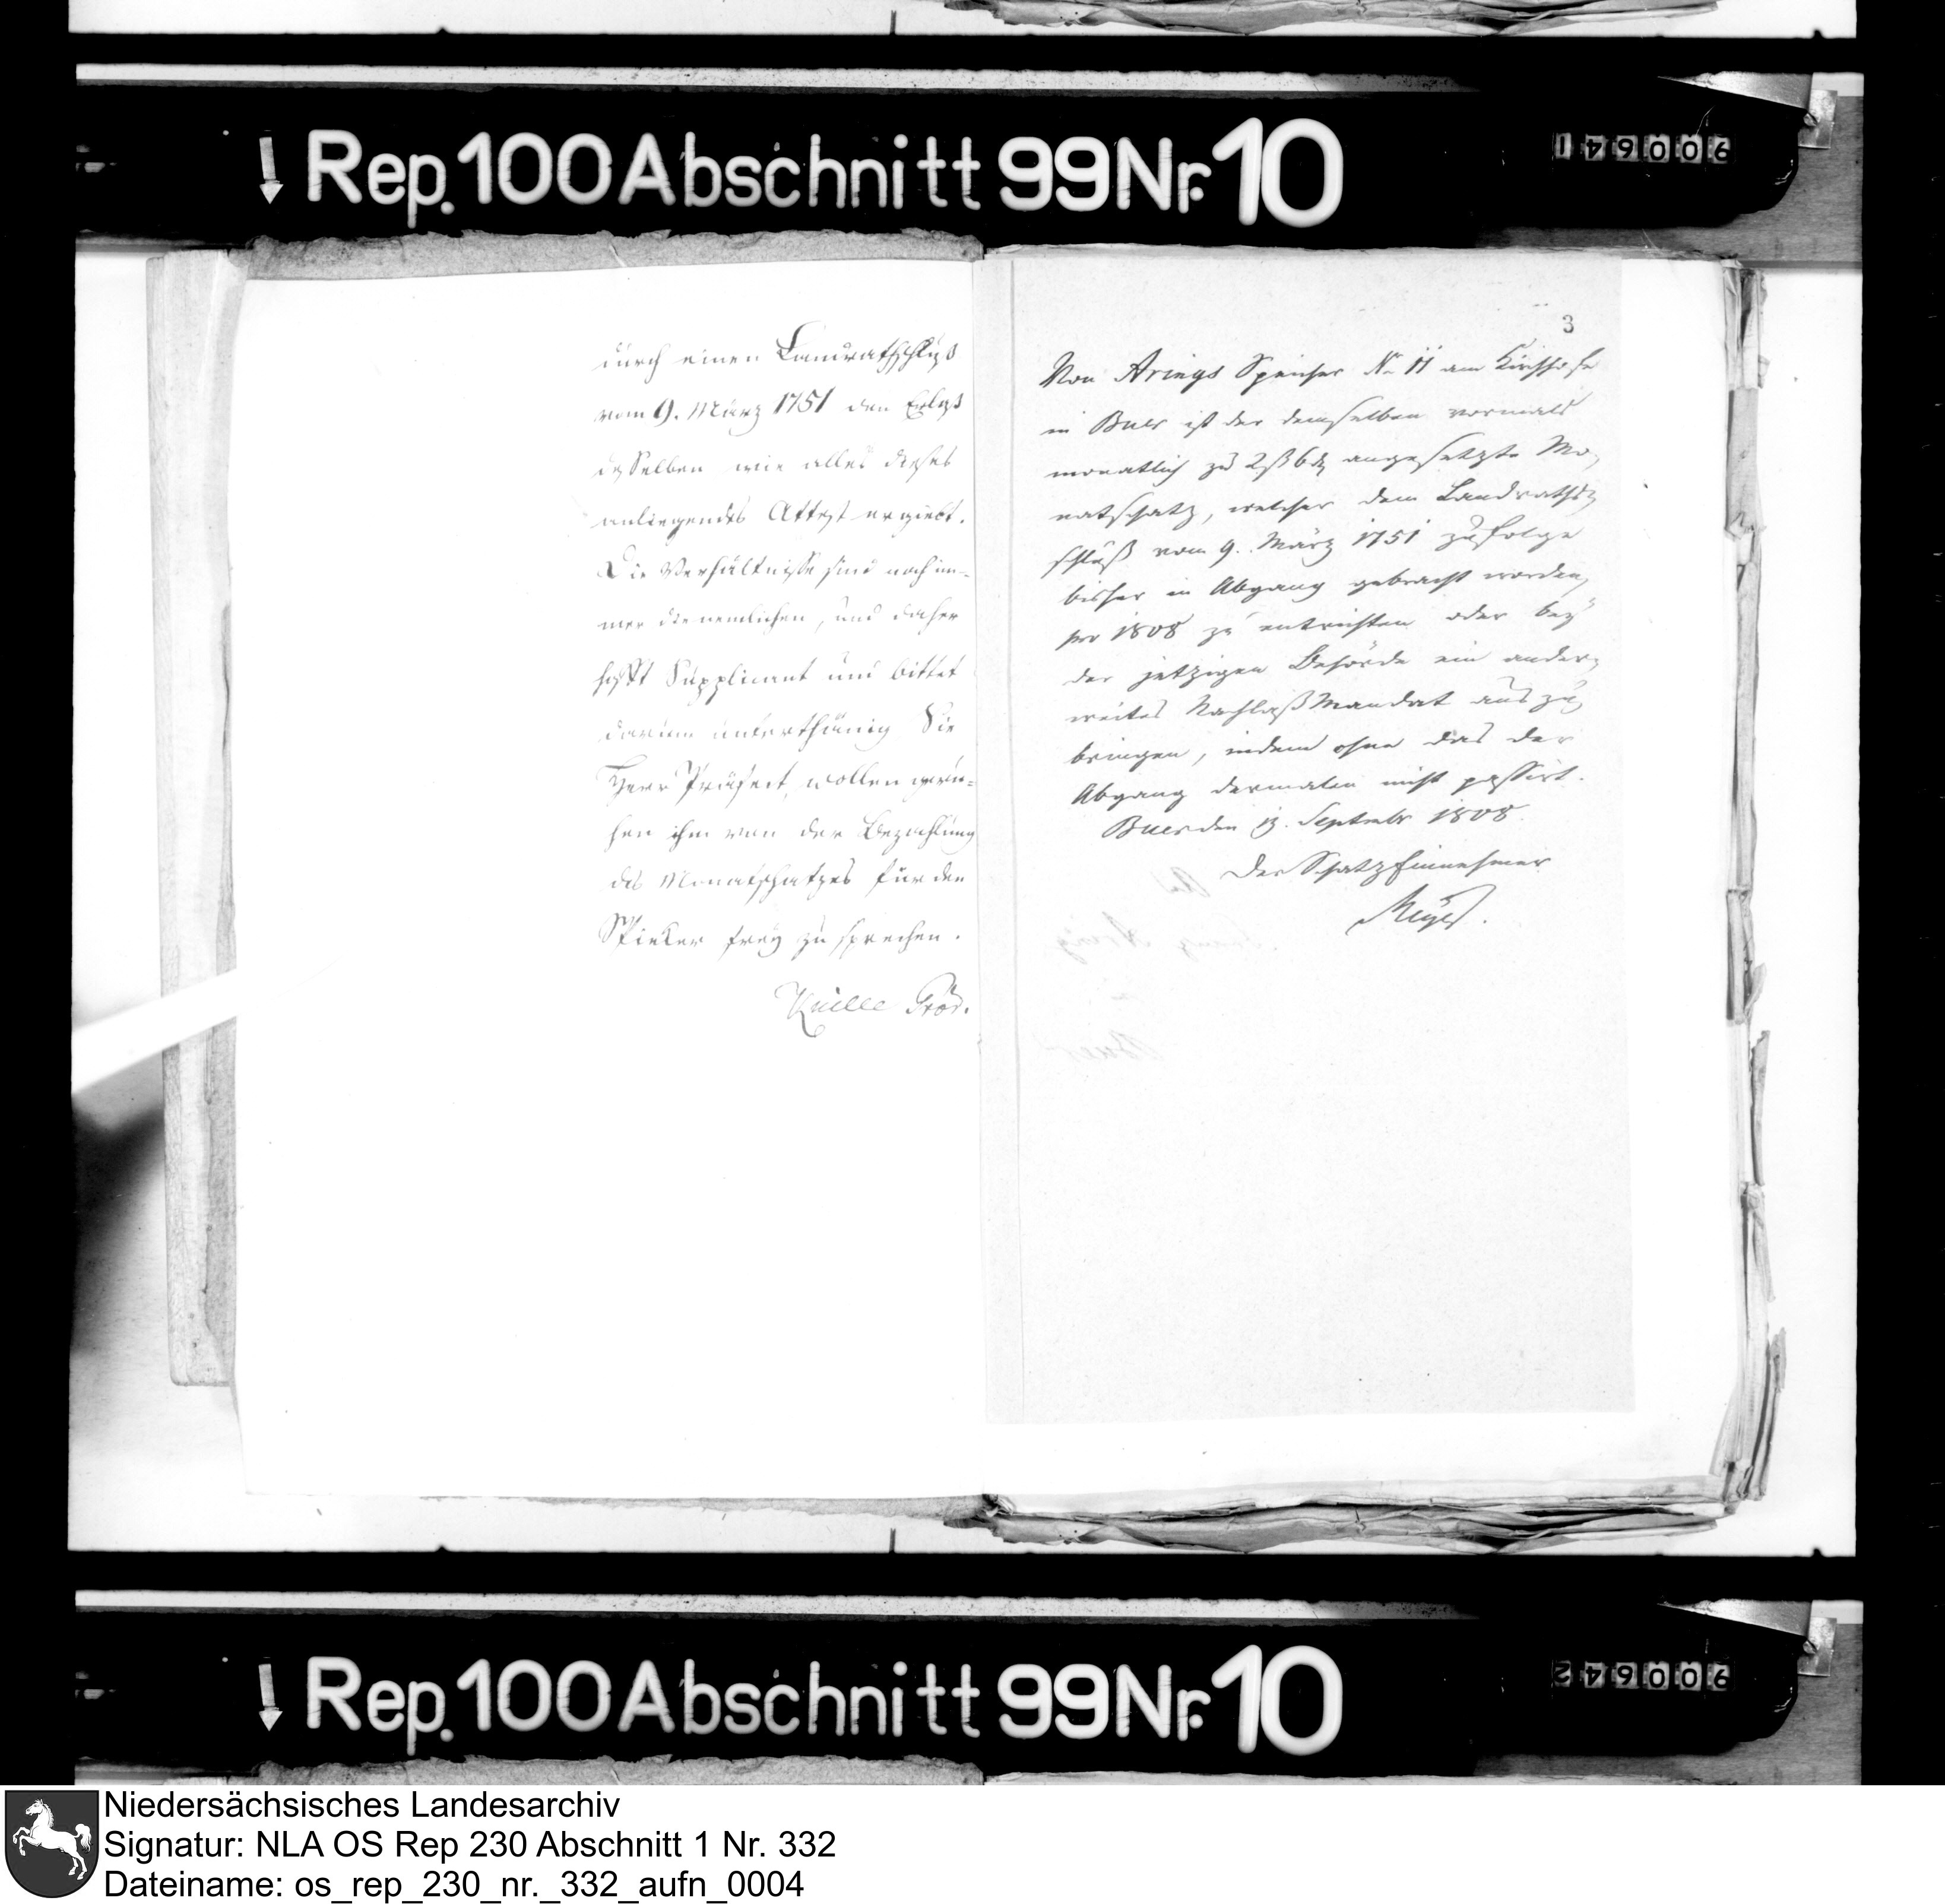 ↓ Rep. 100 Abschnitt 99 Nr. 10
durch einen Landrathschluß
vom 9. März 1751 den Erlaß
desselben wie alles dieses
anliegendes Attest ergiebt.
Die Verhältnisse sind noch im-
mer die nemlichen, und daher
hofft Supplicant und bittet
darum unterthänig Sie
Herr Präfect, wollen geru-
hen ihm von der Bezahlung
des Monatschatzes für den
Spieker frey zu sprechen.
3
Von Arings Speicher No 11 am Kirchhofe
in Buer ist der demselben vormals
monatlich zu 2ß 6d angesetzte Mo-
natschatz, welcher dem Landraths-
schluß vom 9. März 1751 zufolge
bisher in Abgang gebracht worden,
pro 1808 zu entrichten oder bey
der jetzigen Behörde ein ander-
weites Nachlaß Mandat auszu-
bringen, indem ohne das der
Abgang dermalen nicht passirt.
Buer den 13. Septembr 1808.
Der Schatz Einnehmer
Meyer.
↓ Rep. 100 Abschnitt 99 Nr. 10
Niedersächsisches Landesarchiv
Signatur: NLA OS Rep 230 Abschnitt 1 Nr. 332
Dateiname: os_rep_230_nr._332_aufn_0004